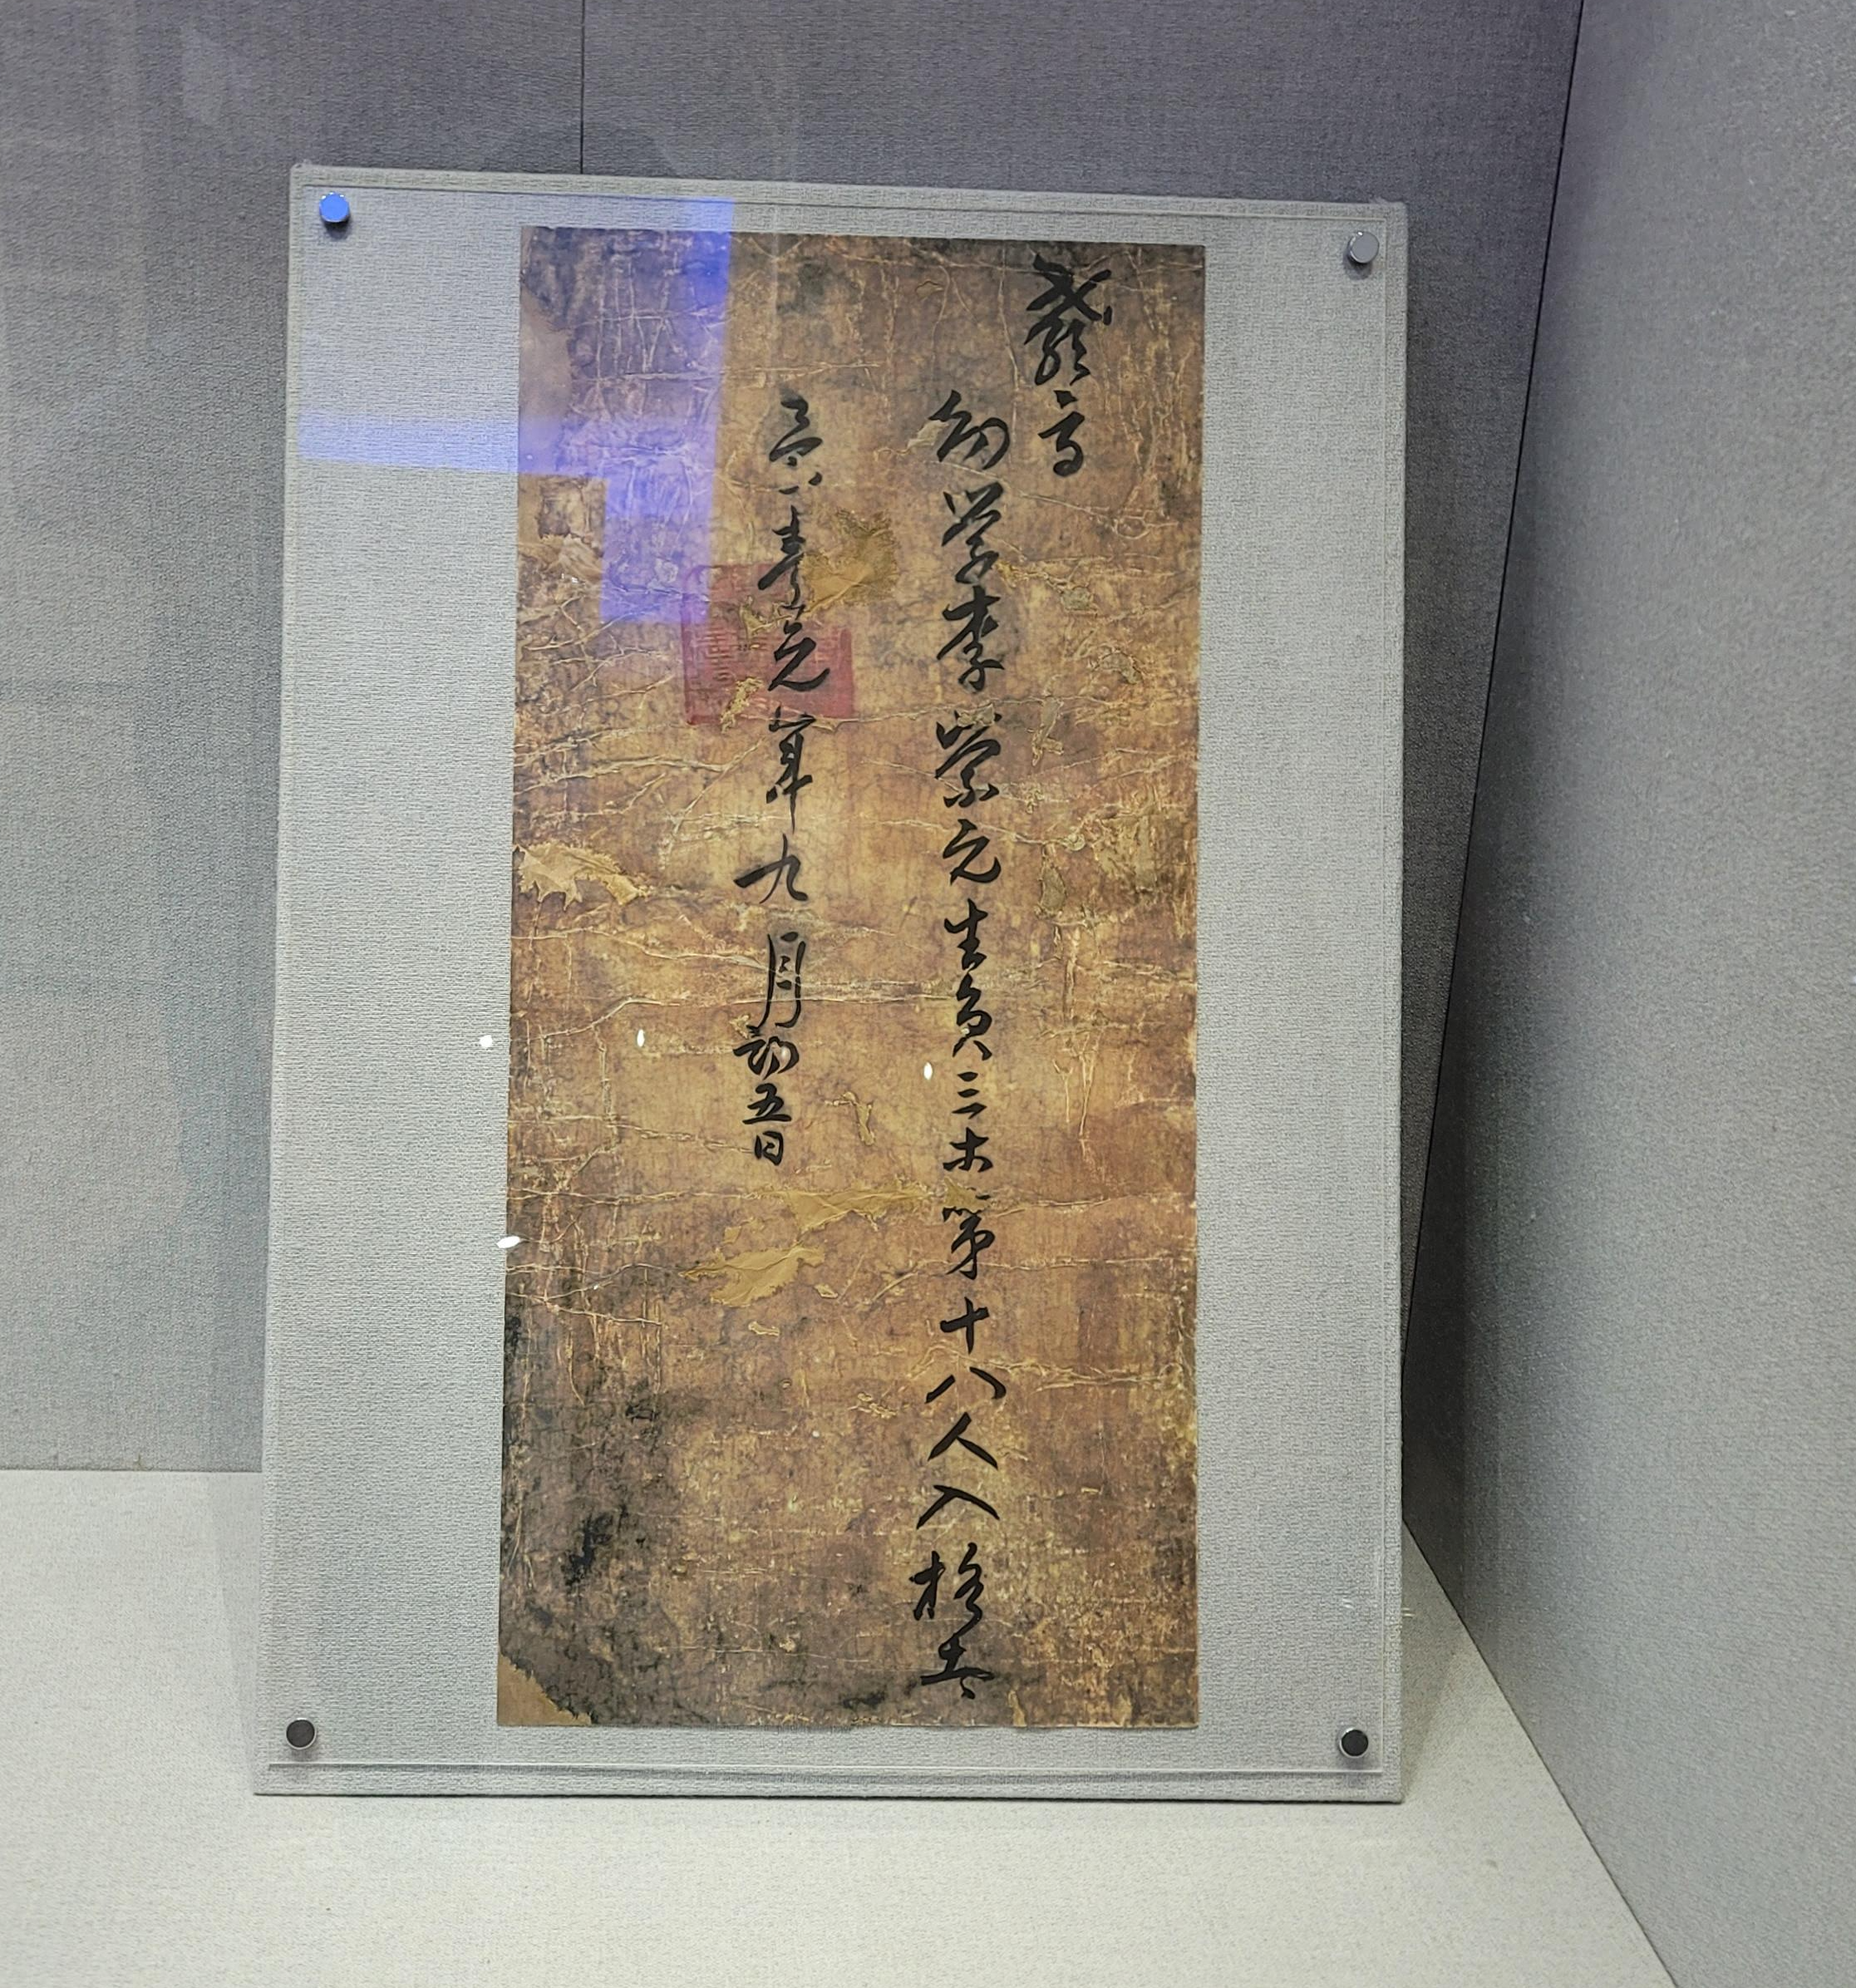 教旨
幼学李崇元生員三等第十八人入格者
景泰元年九月初五日